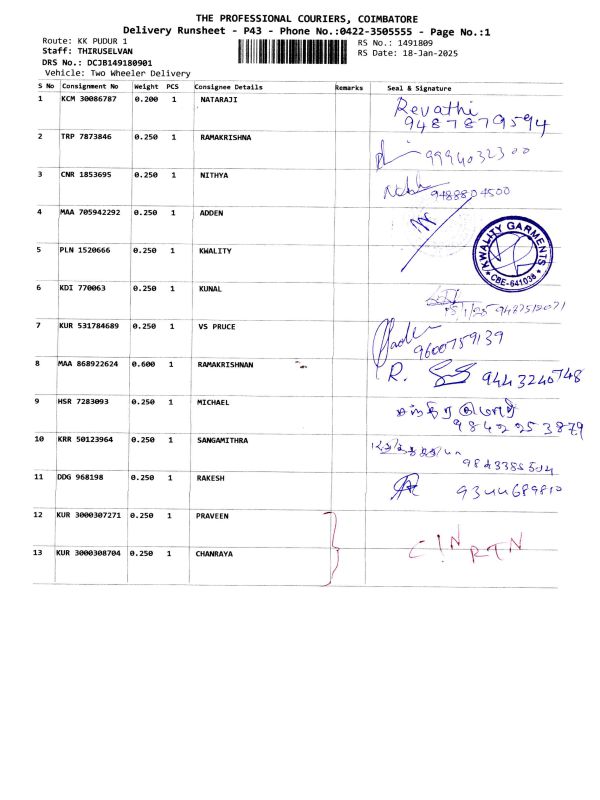 THE PROFESSIONAL COURIERS, COIMBATORE
Delivery Runsheet - P43 - Phone No.:0422-3505555 - Page No.:1
Route: KK PUDUR 1 RS No.: 1491809
Staff: THIRUSELVAN RS Date: 18-Jan-2025
DRS No.: DCJB149180901
Vehicle: Two Wheeler Delivery
S No Consignment No Weight PCS Consignee Details Remarks Seal & Signature
1 KCM 30086787 0.200 1 NATARAJI Revathi
9487879594
2 TRP 7873846 0.250 1 RAMAKRISHNA 9994032300
3 CNR 1853695 0.250 1 NITHYA 9488804500
4 MAA 705942292 0.250 1 ADDEN
5 PLN 1520666 0.250 1 KWALITY KWALITY GARMENTS * CBE-641038 *
6 KDI 770063 0.250 1 KUNAL
7 KUR 531784689 0.250 1 VS PRUCE 9600759139
8 MAA 868922624 0.600 1 RAMAKRISHNAN R. 9443240748
9 HSR 7283093 0.250 1 MICHAEL
9842253879
10 KRR 50123964 0.250 1 SANGAMITHRA
11 DDG 968198 0.250 1 RAKESH 9344689810
12 KUR 3000307271 0.250 1 PRAVEEN
13 KUR 3000308704 0.250 1 CHANRAYA RTN